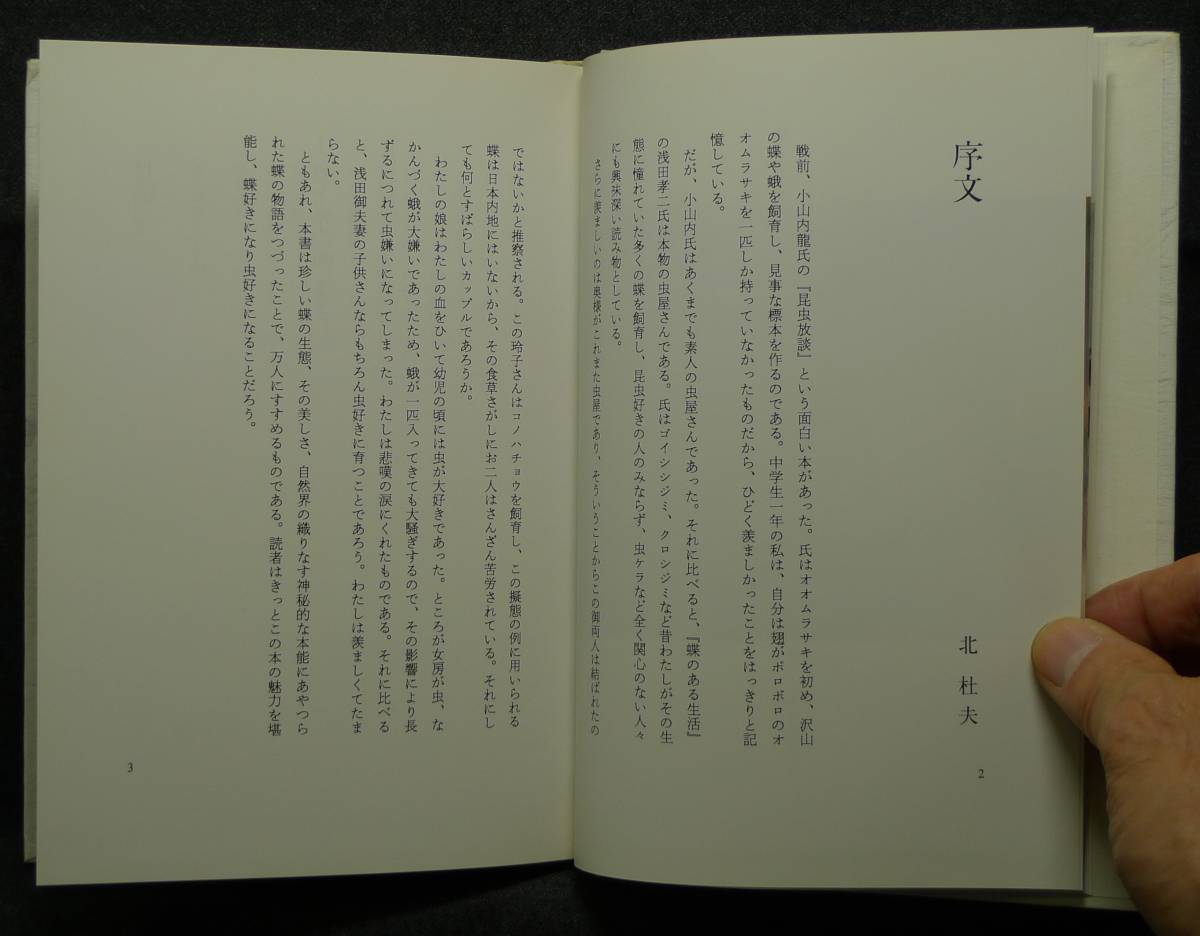 序文
北 杜夫
戦前、小山内龍氏の『昆虫放談』という面白い本があった。氏はオオムラサキを初め、沢山
の蝶や蛾を飼育し、見事な標本を作るのである。中学生一年の私は、自分は翅がボロボロのオ
オムラサキを一匹しか持っていなかったものだから、ひどく羨ましかったことをはっきりと記
憶している。
だが、小山内氏はあくまでも素人の虫屋さんであった。それに比べると、『蝶のある生活』
の浅田孝二氏は本物の虫屋さんである。氏はゴイシシジミ、クロシジミなど昔わたしがその生
態に憧れていた多くの蝶を飼育し、昆虫好きの人のみならず、虫ケラなど全く関心のない人々
にも興味深い読み物としている。
さらに羨ましいのは奥様がこれまた虫屋であり、そういうことからこの御両人は結ばれたの
2
ではないかと推察される。この玲子さんはコノハチョウを飼育し、この擬態の例に用いられる
蝶は日本内地にはいないから、その食草さがしにお二人はさんざん苦労されている。それにし
ても何とすばらしいカップルであろうか。
わたしの娘はわたしの血をひいて幼児の頃には虫が大好きであった。ところが女房が虫、な
かんづく蛾が大嫌いであったため、蛾が一匹入ってきても大騒ぎするので、その影響により長
ずるにつれて虫嫌いになってしまった。わたしは悲嘆の涙にくれたものである。それに比べる
と、浅田御夫妻の子供さんならもちろん虫好きに育つことであろう。わたしは羨ましくてたま
らない。
ともあれ、本書は珍しい蝶の生態、その美しさ、自然界の織りなす神秘的な本能にあやつら
れた蝶の物語をつづったことで、万人にすすめるものである。読者はきっとこの本の魅力を堪
能し、蝶好きになり虫好きになることだろう。
3